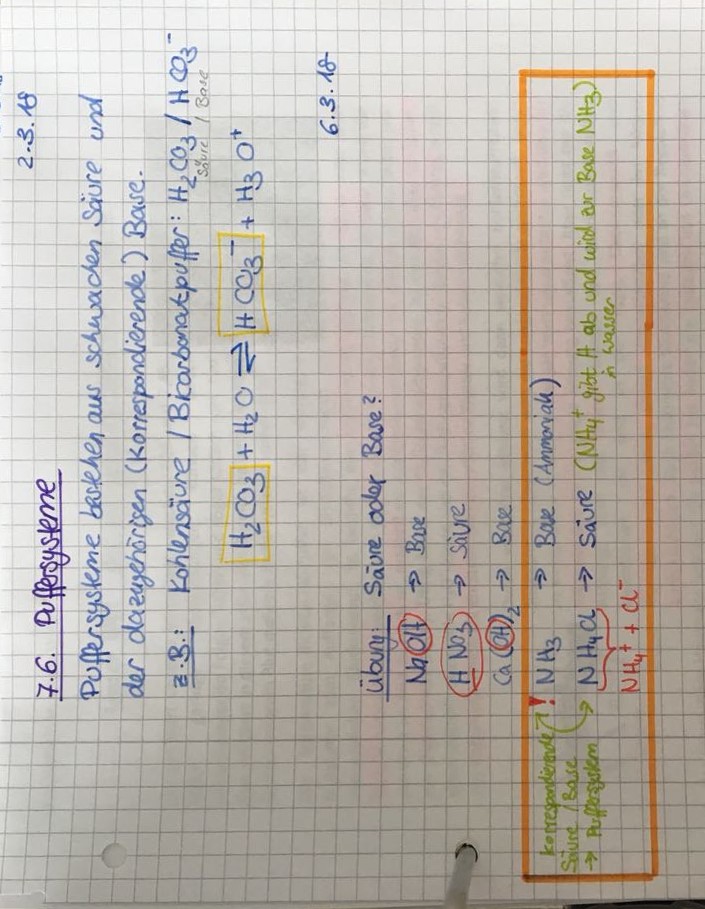 2.3.18
7.6. Puffersysteme
Puffersysteme bestehen aus schwachen Säure und
der dazugehörigen (korrespondierende) Base.
z.B.: Kohlensäure / Bicarbonatpuffer: H₂CO₃ / HCO₃⁻
Säure / Base
H₂CO₃ + H₂O ⇌ HCO₃⁻ + H₃O⁺
6.3.18
Übung: Säure oder Base?
NaOH → Base
HNO₃ → Säure
Ca(OH)₂ → Base
! NH₃ → Base (Ammoniak)
NH₄Cl → Säure (NH₄⁺ gibt H ab und wird zur Base NH₃)
in Wasser
NH₄⁺ + Cl⁻
korrespondierende
Säure / Base
→ Puffersystem